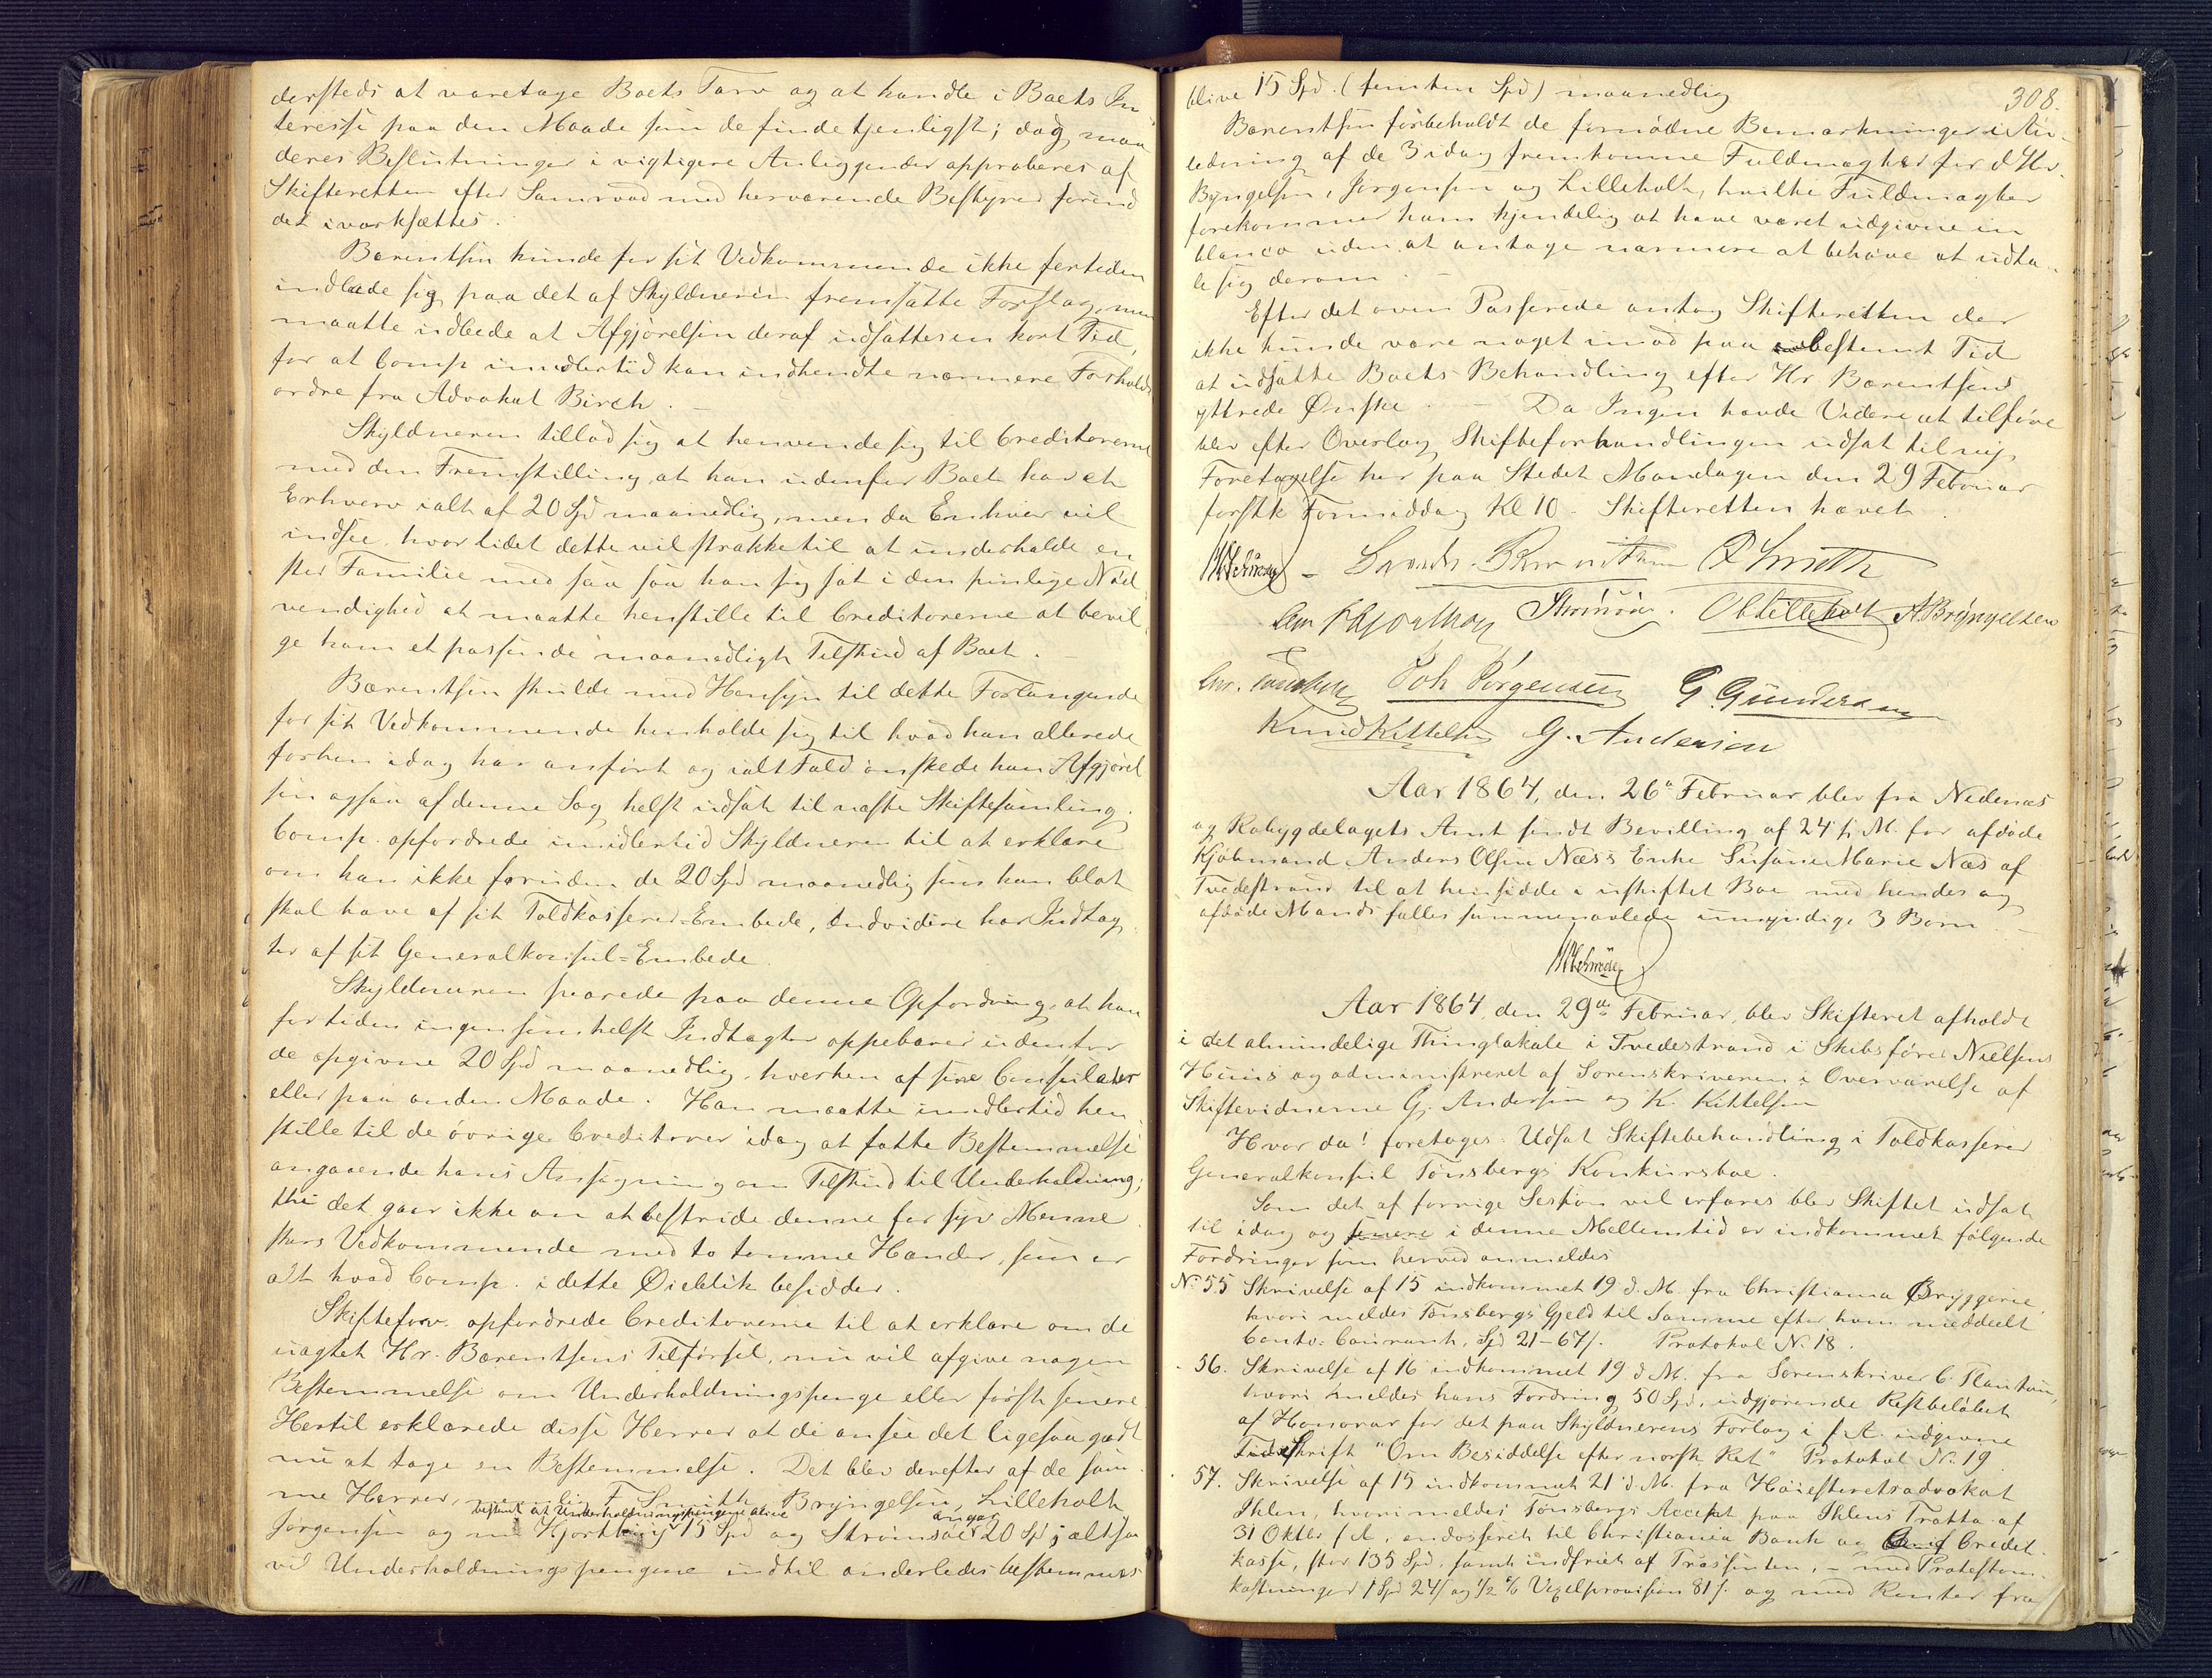 dersteds at varetage Boets Tarv og at handle i Boets In
teresse paa den Maade som de finde tjenligst; dog maa
deres Beslutninger i vigtigere Anliggender approberes af
Skifteretten efter Samraad med herværende Bestyrer forend
det iværksættes.
Bærentsen kunde for sit Vedkommende ikke fortiden
indlade sig paa det af Skyldneren fremsatte Forslag, men
maatte udbede at Afgjørelsen deraf udsættes en kort Tid,
for at Comp imidlertid kan indhendte nærmere Forholds
ordre fra Advokat Birch. –
Skyldneren tillod sig at henvende sig til Creditorerne
med den Fremstilling at han udenfor Boet har et
Erhverv ialt af 20 Spd maanedlig, men da Enhver vil
indsee, hvor lidet dette vil strække til at underholde en
stor Familie med saa saa han sig sat i den pinlige Nød
vendighed at maatte henstille til Creditorerne at bevil
ge ham et passende maanedligt Tilskud af Boet. –
Bærentsen skulde med Hensyn til dette Forlangende
for sit Vedkommende henholde sig til hvad han allerede
forhen idag har anført og ialtfald ønskede han Afgjørel
sen ogsaa af denne Sag helst udsat til næste Skiftesamling.
Comp. opfordrede imidlertid Skyldneren til at erklære
om han ikke foruden de 20 Spd maanedlig som han blot
skal have af sit Toldkasserer-Embede, endvidere har Indtæg
ter af sit Generalkonsul-Embede.
Skyldneren svarede paa denne Opfordring, at han
for tiden ingensomhelst Indtægter oppebærer udenfor
de opgivne 20 Spd maanedlig, hverken af sine Consulater
eller paa anden Maade. Han maatte imidlertid hen
stille til de øvrige Creditorer idag at fatte Bestemmelse
angaaende hans Ansøgning om Tilskud til Underholdning;
thi det gaar ikke an at bestride denne for syv Menne
skers Vedkommende med to tomme Hænder, som er
alt hvad Comp. i dette Øieblik besidder.
Skifteforv. opfordrede Creditorerne til at erklære om de
uagtet Hr. Bærentsens Tilførsel, nu vil afgive nogen
Bestemmelse om Underholdningspenge eller først senere
Hertil erklærede disse Herrer at de ansee det ligesaa godt
nu at tage en Bestemmelse. Det blev derefter af de sam
me Herrer, Smith Bryngelsen, Lilleholt
bestemt at Underholdningspengene blive
Jørgensen og Hjorthøy 15 Spd og Strømsøe 20 Spd; altsaa
vil Underholdningspengene indtil anderledes bestemmes
308.
blive 15 Spd. (femten Spd) maanedlig
Bærentsen forbeholdt de fornødne Bemærkninger i An-
ledning af de 3 idag fremkomne Fuldmagter for d'Hr.
Bryngelsen, Jørgensen og Lilleholt, hvilke Fuldmagter
forekommer ham kjendelig at have været udgivne in
blanco uden at antage nærmere at behøve at udta-
le sig derom. –
Efter det oven Passerede antog Skifteretten der
ikke kunde være noget imod paa bestemt Tid
at udsætte Boets Behandling efter Hr. Bærentsens
yttrede Ønske. – Da Ingen havde Videre at tilføre
blev efter Overlæg Skifteforhandlingen udsat til ny
Foretagelse her paa Stedet Mandagen den 29 Februar
førstk Formiddag Kl 10. Skifteretten hævet.
Smith
Strömsöe. Lilleholt ABryngelsen
Joh Jørgensen G. Gundersen
Knud Kittelsen G. Andersen
Aar 1864, den 26de Februar blev fra Nedenæs
og Robygdelagets Amt sendt Bevilling af 24 s. M. for afdøde
Kjøbmand Anders Olsen Næs's Enke Susane Marie Næs af
Tvedestrand til at hensidde i uskiftet Boe med hendes og
afdøde Mands fælles sammenavlede umyndige 3 Børn. –
Aar 1864, den 29de Februar, blev Skifteret afholdt
i det almindelige Thinglokale i Tvedestrand i Skibsfører Nielsens
Huus og administreret af Sorenskriveren i Overværelse af
Skiftevidnerne G. Andersen og K. Kittelsen
Hvor da! foretages: Udsat Skiftebehandling i Toldkasserer
Generalkonsul Tønsbergs Konkursboe.
Som det af forrige Session vil erfares blev Skiftet udsat
til idag og senere i denne Mellemtid er indkommet følgende
Fordringer som herved anmeldes
No 55 Skrivelse af 15 indkommet 19 d. M. fra Christiania Bryggerie,
hvori meldes Tønsbergs Gjeld til Samme efter ham meddeelt
Conto-Courant, Spd 21-67s. Protokol No. 18.
56. Skrivelse af 16 indkommet 19 d. M. fra Sorenskriver C.
hvori meldes hans Fordring 50 Spd. udgjørende Restbeløbet
af Honorar for det paa Skyldnerens Forlag i f. A. udgivne
Skrift "Om Besiddelse efter norsk Ret" Protokol No. 19
57. Skrivelse af 15 indkommet 21 d. M. fra Høiesteretsadvokat
Ihlen, hvori meldes Tønsbergs Accept paa Ihlens Tratta af
31 Oktbr f. A., endosseret til Christiania Bank og Credit-
kasse, stor 135 Spd. samt indfriet af Trassenten, – med Protestom-
kostninger 1 Spd 24s og 1/2 % Vexelprovision 81s. og med Renter fra